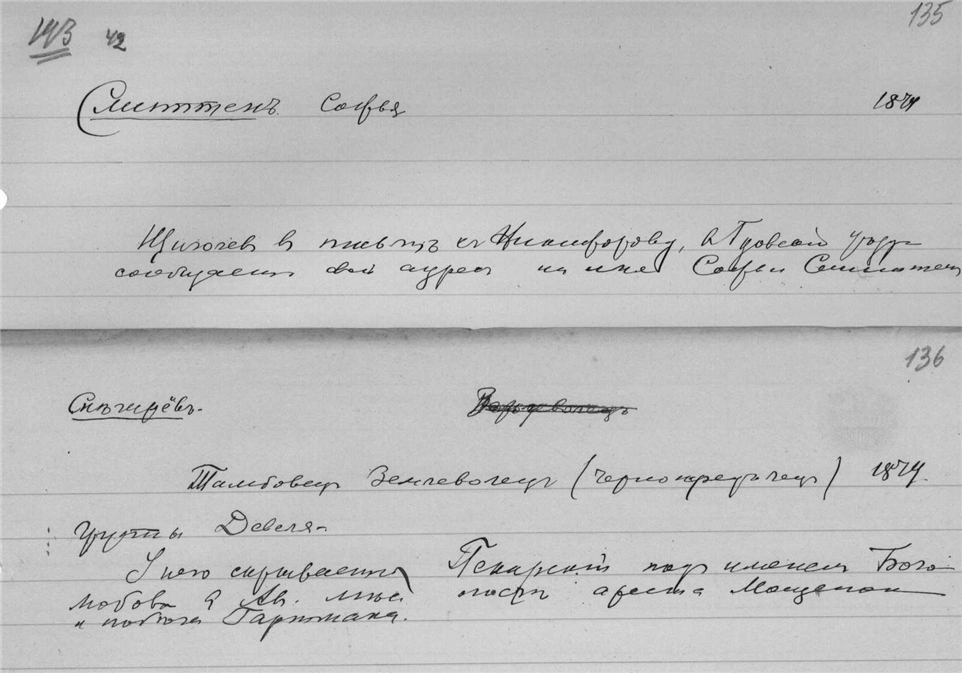 143 42 135
Смиттенъ Софья 1879
Щиголев в письмѣ къ Никифорову, в Гдовский уездъ
сообщает свой адрес на имя Софьи Смиттен
136
Снѣгирёвъ.
Тамбовецъ Землеволецъ (чернопередѣлец) 1879.
группы Девеля
У него скрывается Пекарский подъ именем Бого
любова я Ав. послѣ ареста Мощенко
и побѣга Гартмана.